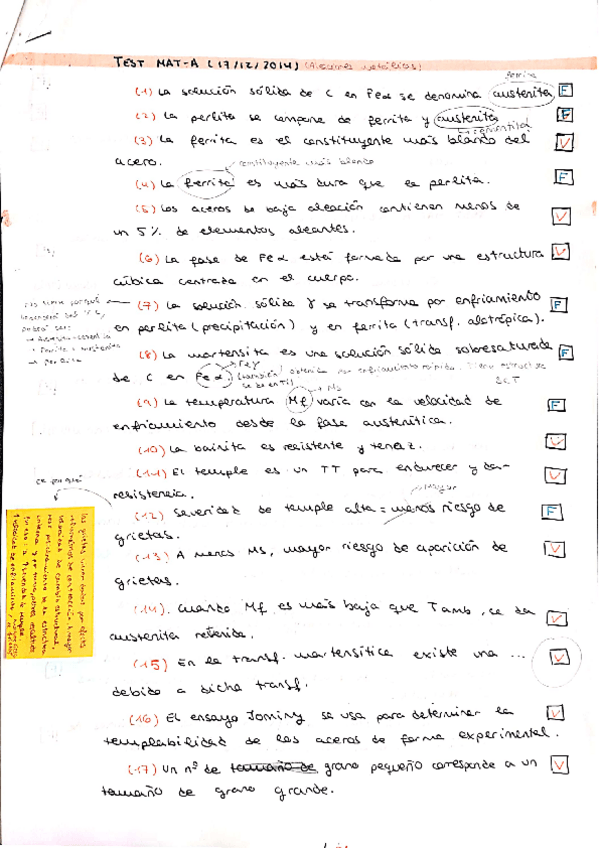 TEST MAT-A (17/12/2014) (Aceros metálicos)
ferrita
(1) La solución sólida de C en Feα se denomina austenita F
(2) La perlita se compone de ferrita y austenita F
(cementita)
(3) La ferrita es el constituyente más blando del V
acero.
constituyente más blando
(4) La ferrita es más dura que la perlita. F
(5) Los aceros de baja aleación contienen menos de V
un 5% de elementos aleantes.
(6) La fase de Feα está formada por una estructura V
cúbica centrada en el cuerpo.
(7) La solución sólida γ se transforma por enfriamiento F
en perlita (precipitación) y en ferrita (transf. alotrópica).
→ perlita
(8) La martensita es una solución sólida sobresaturada F
Feγ
de C en Feα. obtenida por enfriamiento rápido. Tiene estructura
BCT
Ms
(9) La temperatura Mf varía con la velocidad de F
enfriamiento desde la fase austenítica.
(10) La bainita es resistente y tenaz. V
(11) El temple es un TT para endurecer y dar V
resistencia.
mayor
(12) Severidad de temple alta = menos riesgo de F
grietas.
(13) A menos Ms, mayor riesgo de aparición de V
grietas.
(14). Cuando Mf es más baja que Tamb, se da V
austenita retenida.
(15) En la transf. martensítica existe una ... V
debido a dicha transf.
(16) El ensayo Jominy se usa para determinar la V
templabilidad de los aceros de forma experimental.
(17) Un nº de tamaño de grano pequeño corresponde a un V
tamaño de grano grande.